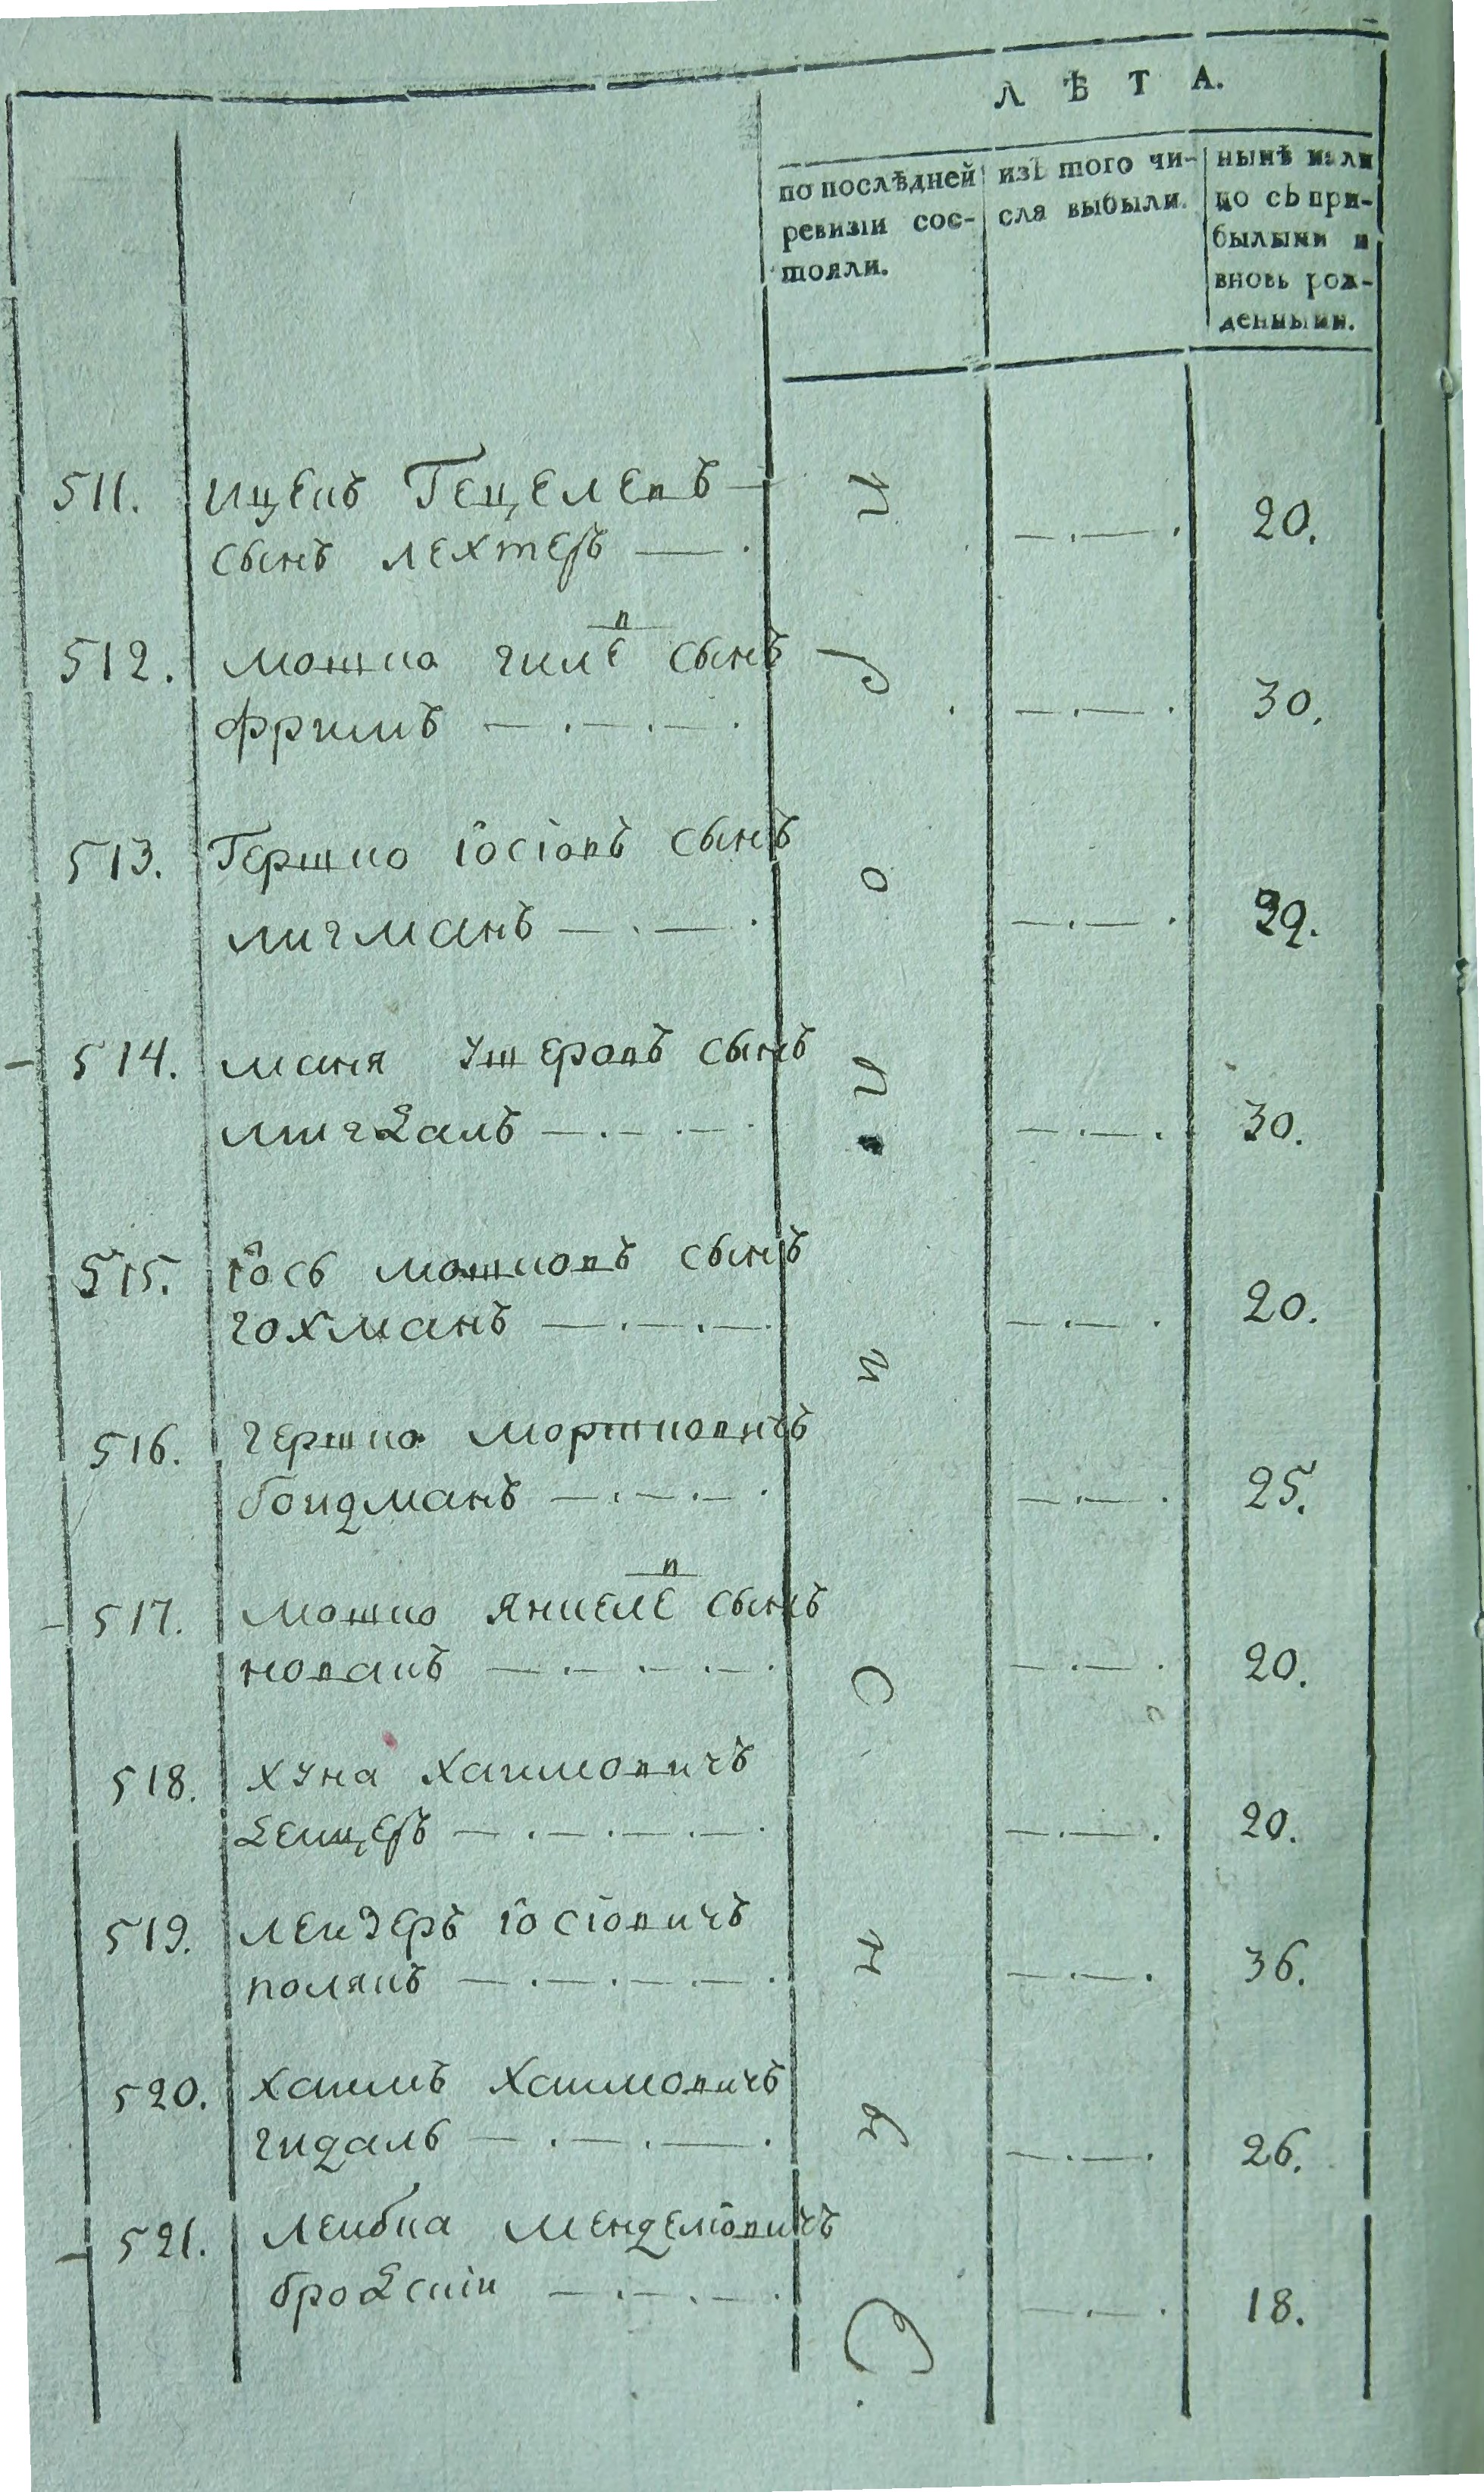 ЛѢТА.
по послѣдней
ревизіи сос-
тояли.
изъ того чи-
сла выбыли.
нынѣ нали
цо съ при-
былыми и
вновь рож-
денными.
511. ицекъ Гецелевъ
сынъ лехтеръ — . — . — . 20.
512. мошко гилев сынъ
фримъ — . — . — . — . — . 30.
513. Гершко іосіовъ сынъ
лигманъ — . — . — . — . 29.
514. маня ушеровъ сынъ
— . — . — . — . 30.
515. іось мошковъ сынъ
гохманъ — . — . — . — . 20.
516. гершко мортковичъ
боидманъ — . — . — . — . 25.
517. мошко янкелев сынъ
новакъ — . — . — . — . — . 20.
518. хуна хаимовичъ
зеицеръ — . — . — . — . — . 20.
519. леизеръ іосіовичъ
полякъ — . — . — . — . — . 36.
520. хаимъ хаимовичъ
гидаль — . — . — . — . 26.
521. леибка менделіовичъ
бродскіи — . — . — . — . 18.